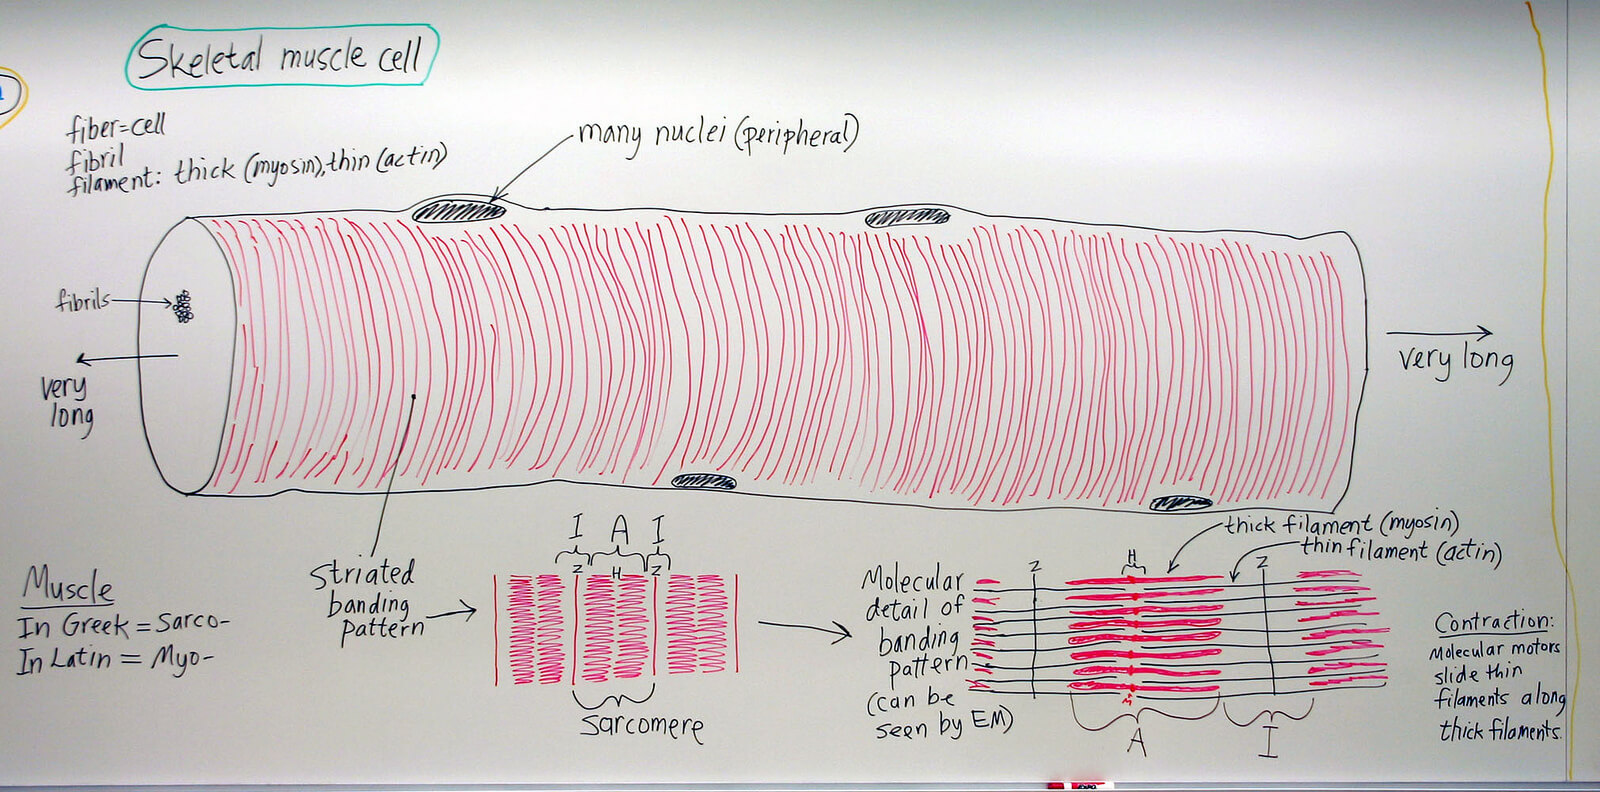 Skeletal muscle cell
fiber=cell
fibril
filament: thick (myosin), thin (actin)
many nuclei (peripheral)
fibrils
very
long
very long
Muscle
In Greek = Sarco-
In Latin = Myo-
Striated
banding
pattern
I A I
Z H Z
Sarcomere
Molecular
detail of
banding
pattern
(can be
seen by EM)
thick filament (myosin)
thin filament (actin)
Z H Z
M
A I
Contraction:
Molecular motors
slide thin
filaments along
thick filaments.